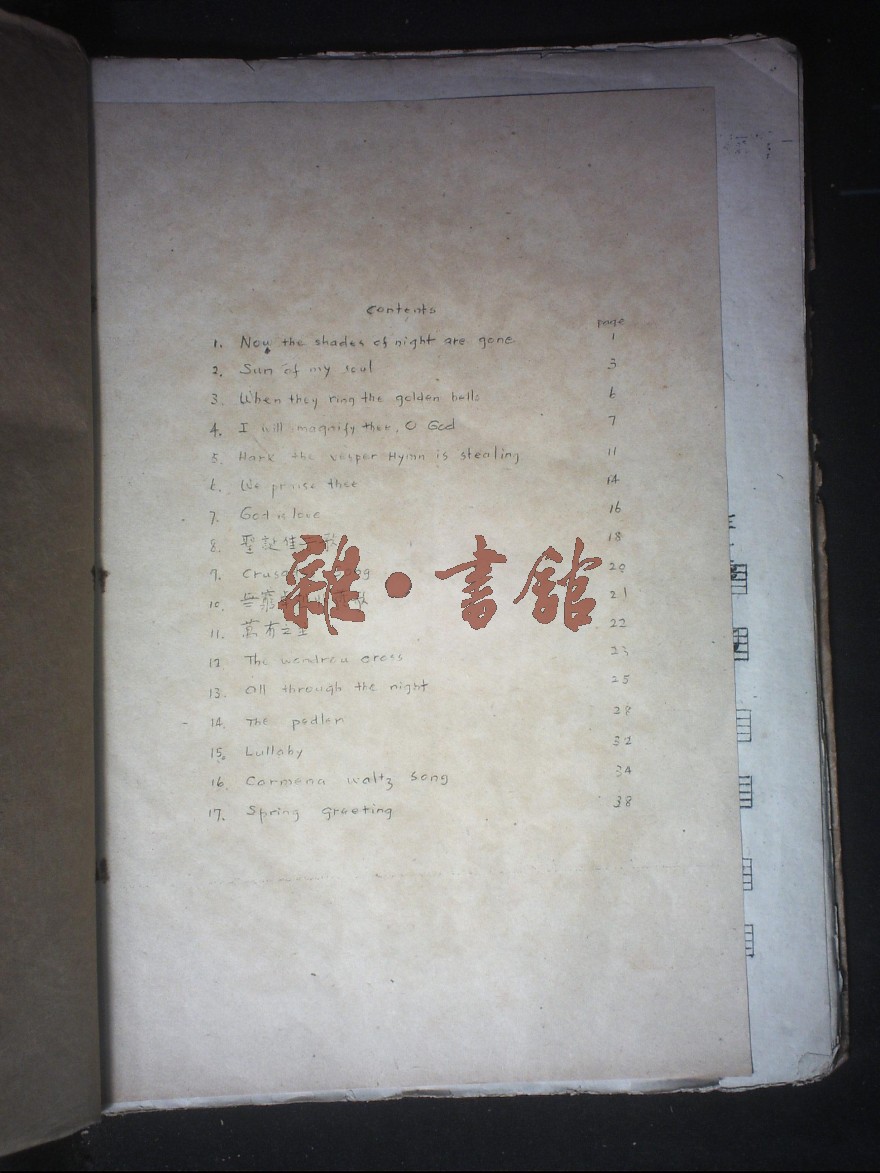 contents
page
1. Now the shades of night are gone 1
2. Sun of my soul 3
3. When they ring the golden bells 6
4. I will magnify thee, O God 7
5. Hark the vesper Hymn is stealing 11
6. We praise thee 14
7. God is love 16
8. 聖誕佳 歌 18
9. 20
10. 無窮 21
11. 萬有之 22
12 The wondrou cross 23
13. All through the night 25
14. The pedlar 28
15. Lullaby 32
16. Carmena waltz song 34
17. Spring greeting 38
雜·書館